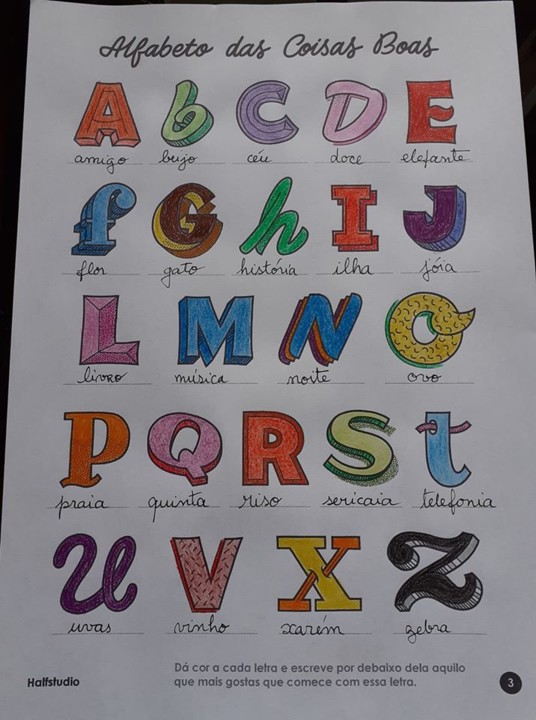 Alfabeto das Coisas Boas
A b C D E
amigo beijo céu doce elefante
f G h I J
flor gato história ilha jóia
L M N O
livro música noite ovo
P Q R S t
praia quinta riso sericaia telefonia
U V X Z
uvas vinho xarém zebra
Halfstudio
Dá cor a cada letra e escreve por debaixo dela aquilo
que mais gostas que comece com essa letra.
3